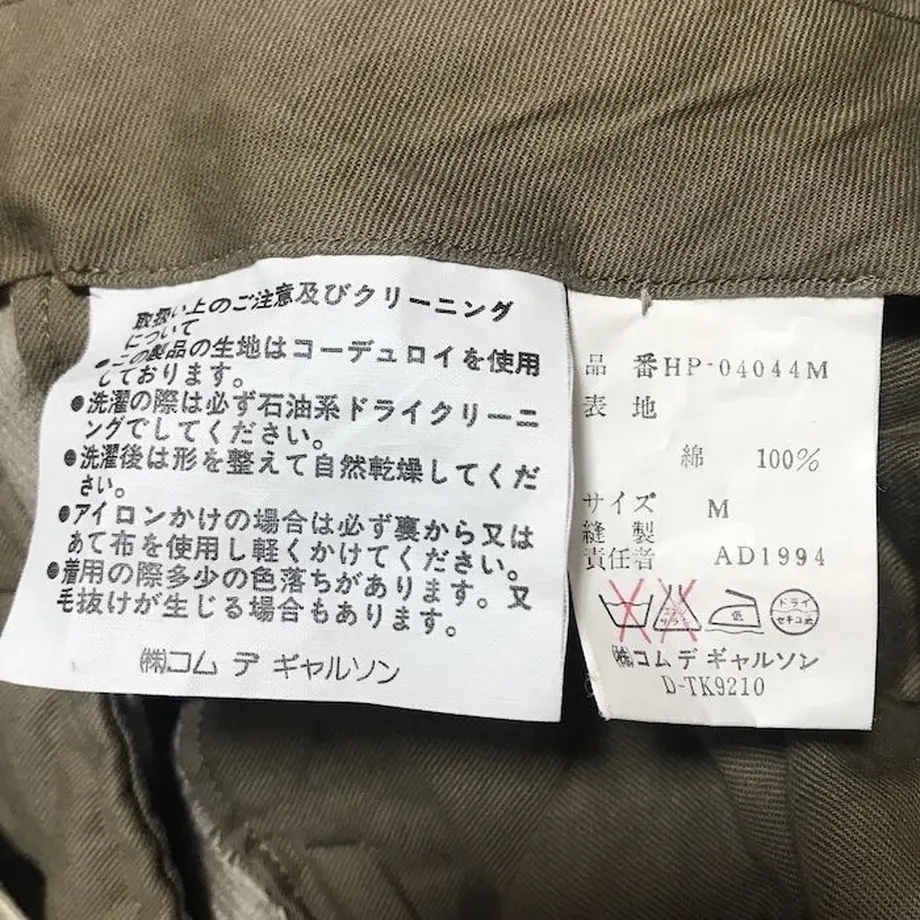 取扱い上のご注意及びクリーニング
について
●この製品の生地はコーデュロイを使用
しております。
●洗濯の際は必ず石油系ドライクリーニ
ングでしてください。
●洗濯後は形を整えて自然乾燥してくだ
さい。
●アイロンかけの場合は必ず裏から又は
あて布を使用し軽くかけてください。
●着用の際多少の色落ちがあります。又
毛抜けが生じる場合もあります。
㈱コム デ ギャルソン
品 番HP-04044M
表 地
綿 100%
サイズ M
縫 製
責任者 AD1994
低
ドライ
セキユ系
㈱コム デ ギャルソン
D-TK9210